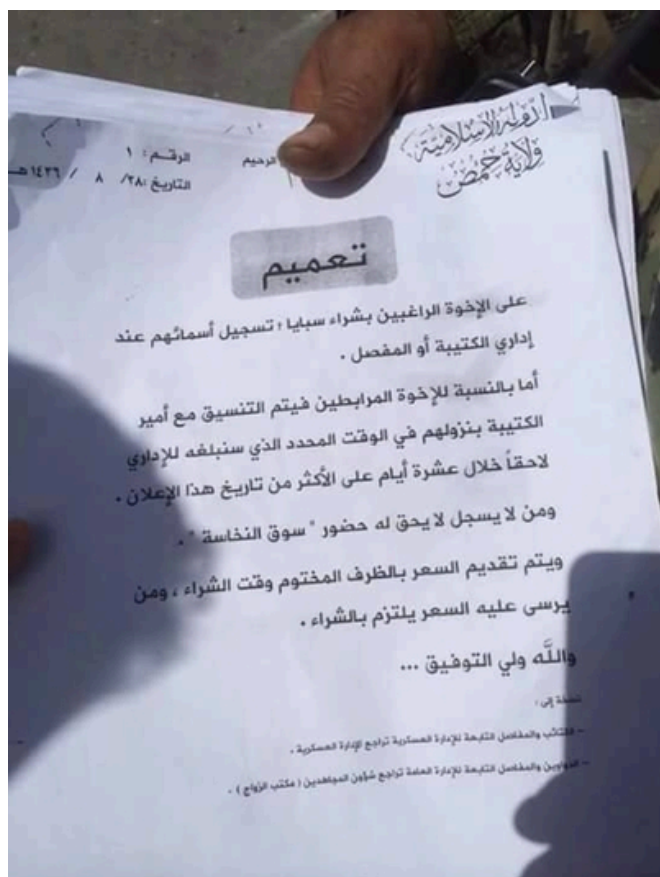 الدولة الإسلامية
ولاية حمص
الرحيم
الرقم : ١
التاريخ : ٢٨/ ٨ / ١٤٣٦ هـ
تعميم
على الإخوة الراغبين بشراء سبايا ؛ تسجيل أسمائهم عند
إداري الكتيبة أو المفصل .
أما بالنسبة للإخوة المرابطين فيتم التنسيق مع أمير
الكتيبة بنزولهم في الوقت المحدد الذي سنبلغه للإداري
لاحقاً خلال عشرة أيام على الأكثر من تاريخ هذا الإعلان .
ومن لا يسجل لا يحق له حضور " سوق النخاسة " .
ويتم تقديم السعر بالظرف المختوم وقت الشراء ، ومن
يرسى عليه السعر يلتزم بالشراء .
والله ولي التوفيق ...
نسخة إلى :
- الكتائب والمفاصل التابعة للإدارة العسكرية تراجع الإدارة العسكرية .
- الدواوين والمفاصل التابعة للإدارة العامة تراجع شؤون المجاهدين ( مكتب الزواج ) .